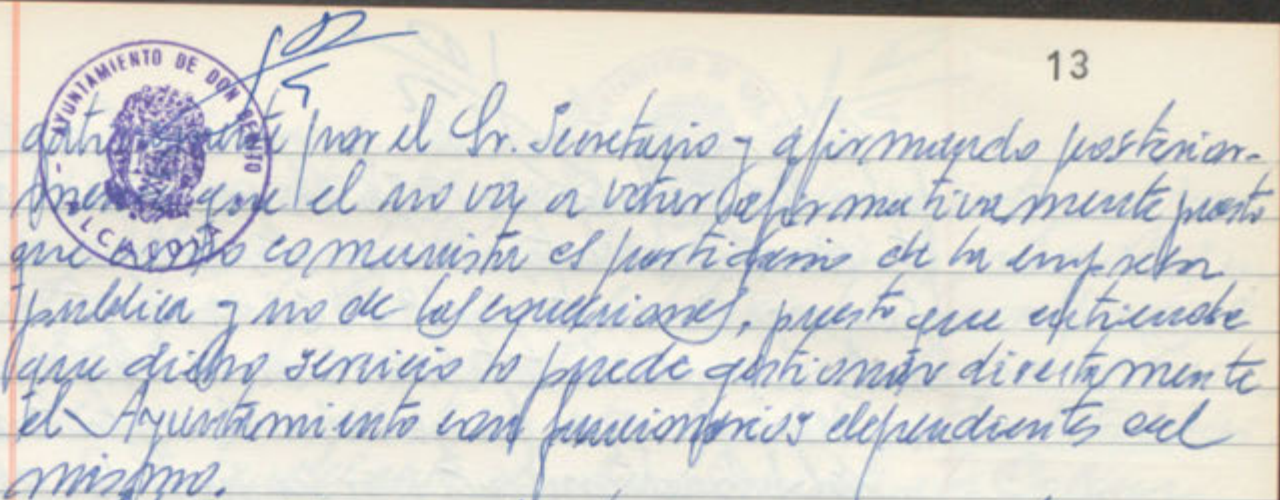 13
- AYUNTAMIENTO DE DON BENITO -
ALCALDIA
por el Sr. Secretario y afirmando posterior-
mente que el no va a votar afirmativamente puesto
que como comunista es partidario de la empresa
publica y no de las concesiones, puesto que entiende
que dicho servicio lo puede gestionar directamente
el Ayuntamiento con funcionarios dependientes del
mismo.